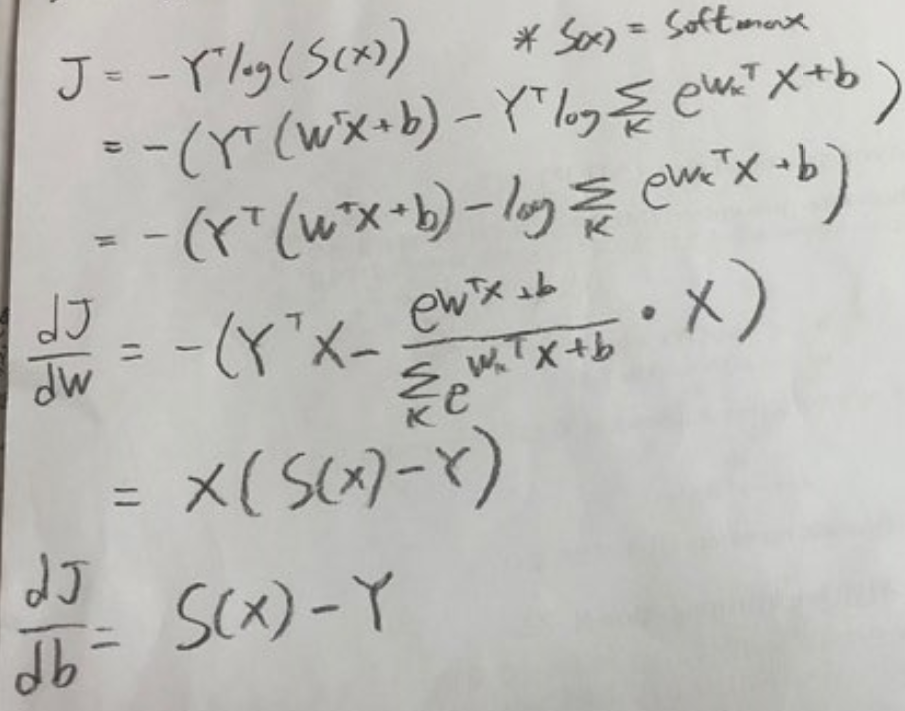 J = -Yᵀlog(S(X)) * S(x) = Softmax
= -(Yᵀ(WᵀX+b) - Yᵀlog∑_K e^{Wₖᵀ X+b})
= -(Yᵀ(WᵀX+b) - log∑_K e^{Wₖᵀ X+b})
dJ/dW = -(YᵀX - e^{WᵀX+b} / ∑_K e^{Wₖᵀ X+b} · X)
= X(S(X)-Y)
dJ/db = S(X)-Y